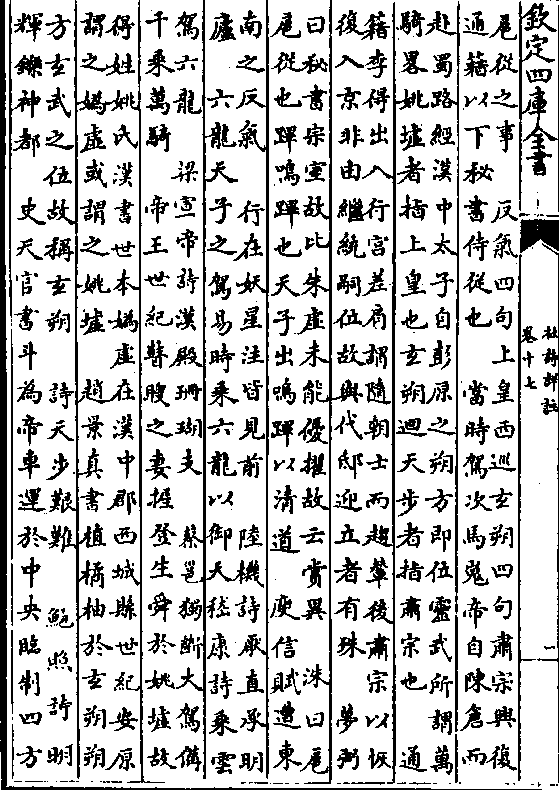 欽定四庫全書
杜詩詳註
卷十七
一
扈從之事 反氣四句上皇西巡玄朔四句肅宗興復
通籍以下秘書侍從也 當時駕次馬嵬帝自陳倉而
赴蜀路經漢中太子自彭原之朔方即位靈武所謂萬
騎畧姚墟者指上皇也玄朔迴天步者指肅宗也 通
籍李得出入行宮差肩謂隨朝士而趨輦後肅宗以恢
復入京非由繼統嗣位故與代邸迎立者有殊 夢弼
曰秘書宗室故比朱虛未能優擢故云賞異 洙曰扈
扈從也蹕鳴蹕也天子出鳴蹕以清道 庾信賦遭東
南之反氣 行在妖星注皆見前 陸機詩厥直承明
廬 六龍天子之駕易時乘六龍以御天嵇康詩乘雲
駕六龍 梁宣帝詩漢殿珊瑚支 蔡邕獨斷大駕備
千乘萬騎 帝王世紀瞽瞍之妻握登生舜於姚墟故
得姓姚氏漢書世本媯虛在漢中郡西城縣世紀安原
謂之媯虛或謂之姚墟 趙景真書植橘柚於玄朔朔
方玄武之位故稱玄朔 詩天步艱難 鮑照詩明
輝鑠神都 史天官書斗為帝車運於中央臨制四方